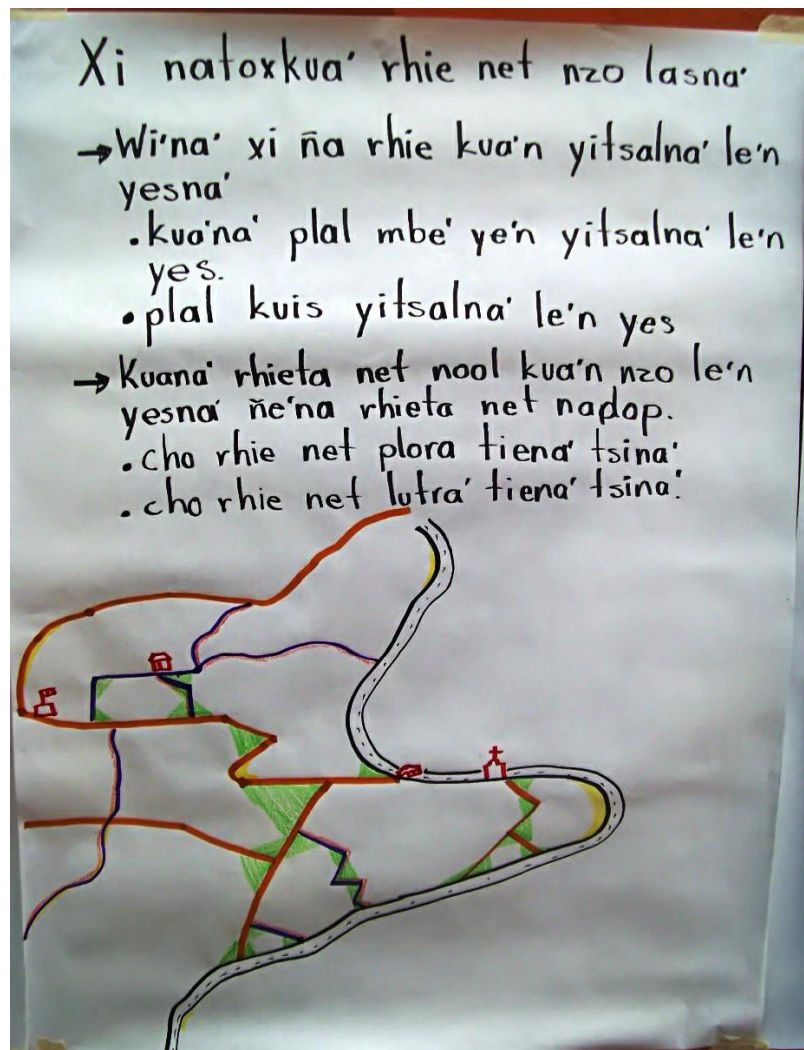 Xi natoxkua' rhie net nzo lasna'
→Wi'na' xi ña rhie kua'n yitsalna' le'n
yesna'
.kua'na' plal mbe' ye'n yitsalna' le'n
yes.
•plal kuis yitsalna' le'n yes
→Kuana' rhieta net nool kua'n nzo le'n
yesna' ñe'na rhieta net nadop.
.cho rhie net plora tiena' tsina'
.cho rhie net lutra' tiena' tsina'.